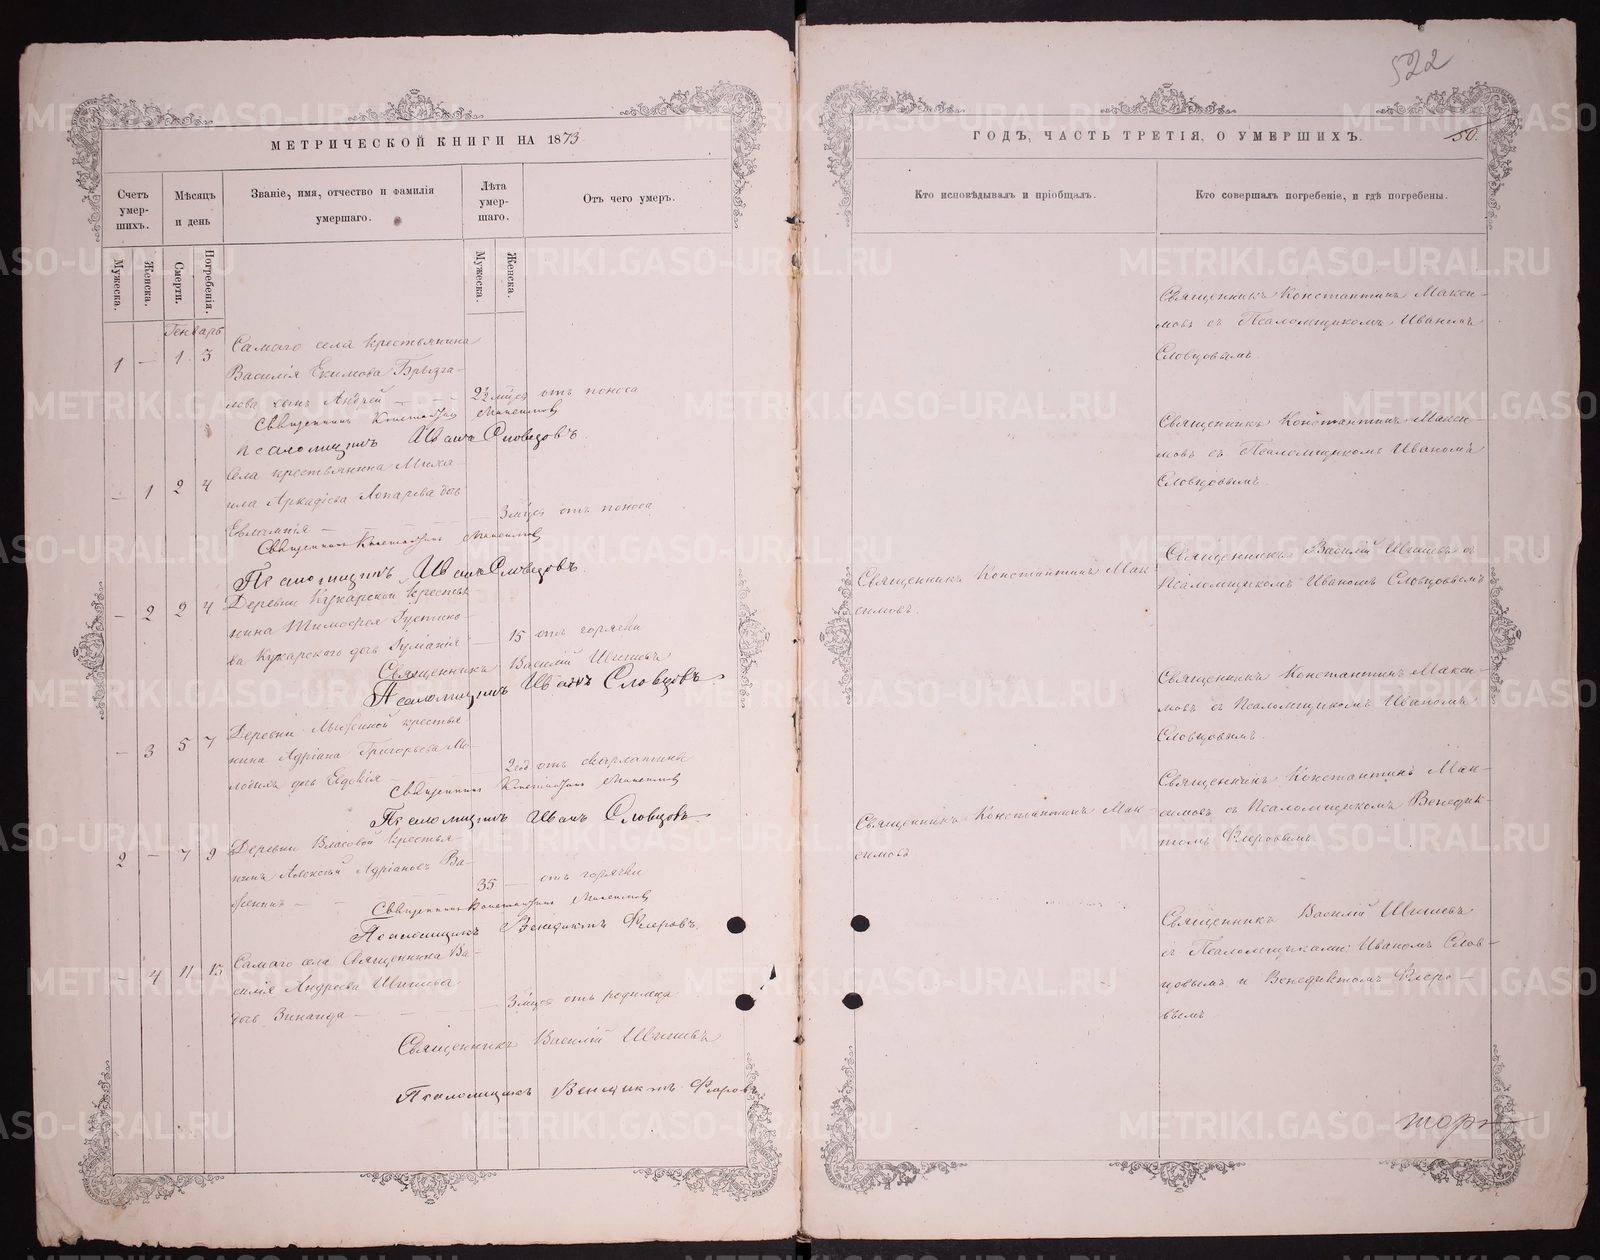 522
МЕТРИЧЕСКОЙ КНИГИ НА 1873
Счетъ умер-шихъ.
Мѣсяцъ и день
Званіе, имя, отчество и фамилія умершаго.
Лѣта умер-шаго.
Отъ чего умеръ.
Мужеска.
Женска.
Смерти.
Погребенія.
Мужеска.
Женска.
Генварь
1 — 1 3 Самаго села крестьянина
Василія Екимова Брызга-
лова сынъ Андрей — 2½ мѣся отъ поноса
Священникъ Константинъ Максимовъ
Псаломщикъ Иванъ Словцовъ.
— 1 2 4 Села крестьянина Миха-
ила Аркадіева Лопарева дочь
Евлампія — 3 мѣся отъ поноса
Священникъ Константинъ Максимовъ
Псаломщикъ Иванъ Словцовъ.
— 2 2 4 Деревни Кукарской крестья
нина Тимоѳея
ва Кукарскаго дочь — 15 отъ горячки
Священникъ Василій Шишевъ
Псаломщикъ Иванъ Словцовъ
— 3 5 7 Деревни крестья
нина Адріана Григорьева Мо-
дочь Евдокія — 2 год отъ скарлатины
Священникъ Константинъ Максимовъ
Псаломщикъ Иванъ Словцовъ.
2 — 7 9 Деревни Власовой крестья
нинъ Алексѣй Адріановъ Ва-
— 35 — отъ горячки
Священникъ Константинъ Максимовъ
Псаломщикъ Венедиктъ Флеровъ.
— 4 11 13 Самаго села Священника Ва-
силія Андреева Шишева
дочь Зинаида — 3 мѣся отъ родимца
Священникъ Василій Шишевъ
Псаломщикъ Венедиктъ Флеровъ
ГОДЪ, ЧАСТЬ ТРЕТІЯ, О УМЕРШИХЪ.
50.
Кто исповѣдывалъ и пріобщалъ.
Кто совершалъ погребеніе, и гдѣ погребены.
Священникъ Константинъ Макси-
мовъ съ Псаломщикомъ Иваномъ
Словцовымъ.
Священникъ Константинъ Макси-
мовъ съ Псаломщикомъ Иваномъ
Словцовымъ.
Священникъ Константинъ Мак-
симовъ.
Священникъ Василій Шишевъ съ
Псаломщикомъ Иваномъ Словцовымъ
Священникъ Константинъ Макси-
мовъ съ Псаломщикомъ Иваномъ
Словцовымъ.
Священникъ Константинъ Мак-
симовъ
Священникъ Константинъ Мак-
симовъ съ Псаломщикомъ Венедик-
томъ Флеровымъ.
Священникъ Василій Шишевъ
съ Псаломщиками: Иваномъ Слов-
цовымъ и Венедиктомъ Флеро-
вымъ
METRIKI.GASO-URAL.RU